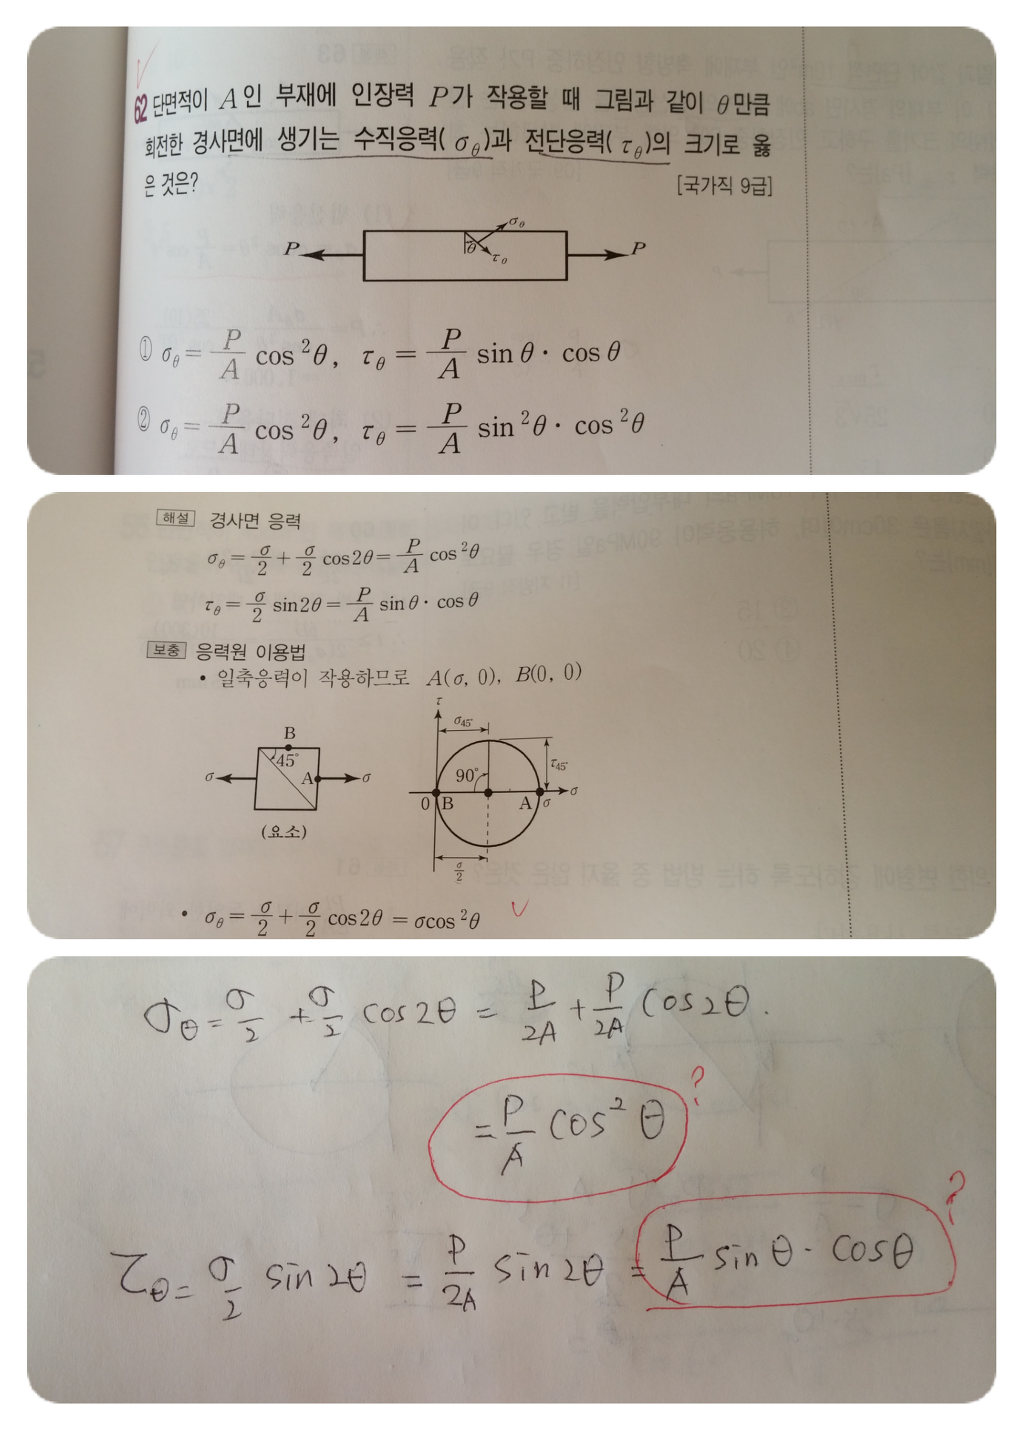 62 단면적이 A인 부재에 인장력 P가 작용할 때 그림과 같이 θ만큼
회전한 경사면에 생기는 수직응력(σθ)과 전단응력(τθ)의 크기로 옳
은 것은?
[국가직 9급]
P θ σθ τθ P
① σθ = P/A cos²θ, τθ = P/A sinθ · cosθ
② σθ = P/A cos²θ, τθ = P/A sin²θ · cos²θ
해설 경사면 응력
σθ = σ/2 + σ/2 cos2θ = P/A cos²θ
τθ = σ/2 sin2θ = P/A sinθ · cosθ
보충 응력원 이용법
• 일축응력이 작용하므로 A(σ, 0), B(0, 0)
B
45°
σ A σ
(요소)
τ
σ45°
90°
τ45°
0 B A σ σ
σ/2
• σθ = σ/2 + σ/2 cos2θ = σcos²θ
σθ = σ/2 + σ/2 cos2θ = P/2A + P/2A cos2θ.
= P/A cos² θ ?
τθ = σ/2 sin2θ = P/2A sin2θ = P/A sinθ · cosθ ?